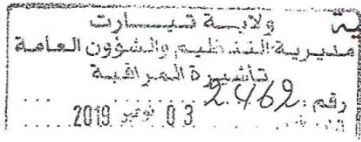 ية
ولايـة تيـسـارت
مديرية التنظيم والشؤون العامة
تأشيرة المراقبة
رقم: 2462
03 نوفمبر 2019